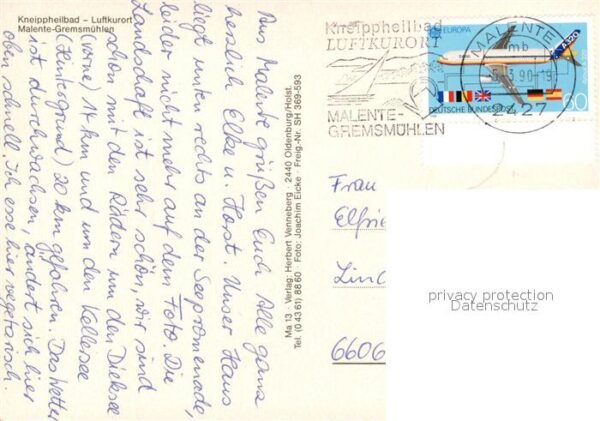 Kneippheilbad – Luftkurort
Malente-Gremsmühlen
Aus Malente grüßen Euch Alle ganz
herzlich Elke u. Horst. Unser Haus
liegt unten rechts an der Seepromenade,
leider nicht mehr auf dem Foto. Die
Landschaft ist sehr schön, wir sind
schon mit den Rädern um den Dieksee
(vorne) 14 km und um den Kellersee
(Hintergrund) 20 km gefahren. Das Wetter
ist durchwachsen, ändert sich hier
aber schnell. Ich esse hier vegetarisch.
Ma 13 · Verlag: Herbert Venneberg · 2440 Oldenburg/Holst.
Tel. (0 43 61) 88 60 · Foto: Joachim Eicke · Freig.-Nr. SH 369-593
Kneippheilbad
LUFTKURORT
MALENTE-
GREMSMÜHLEN
MALENTE
mb
3.90-19
2427
EUROPA
A320
DEUTSCHE BUNDESPOST
60
Frau
Elfri
Lind
6606
privacy protection
Datenschutz